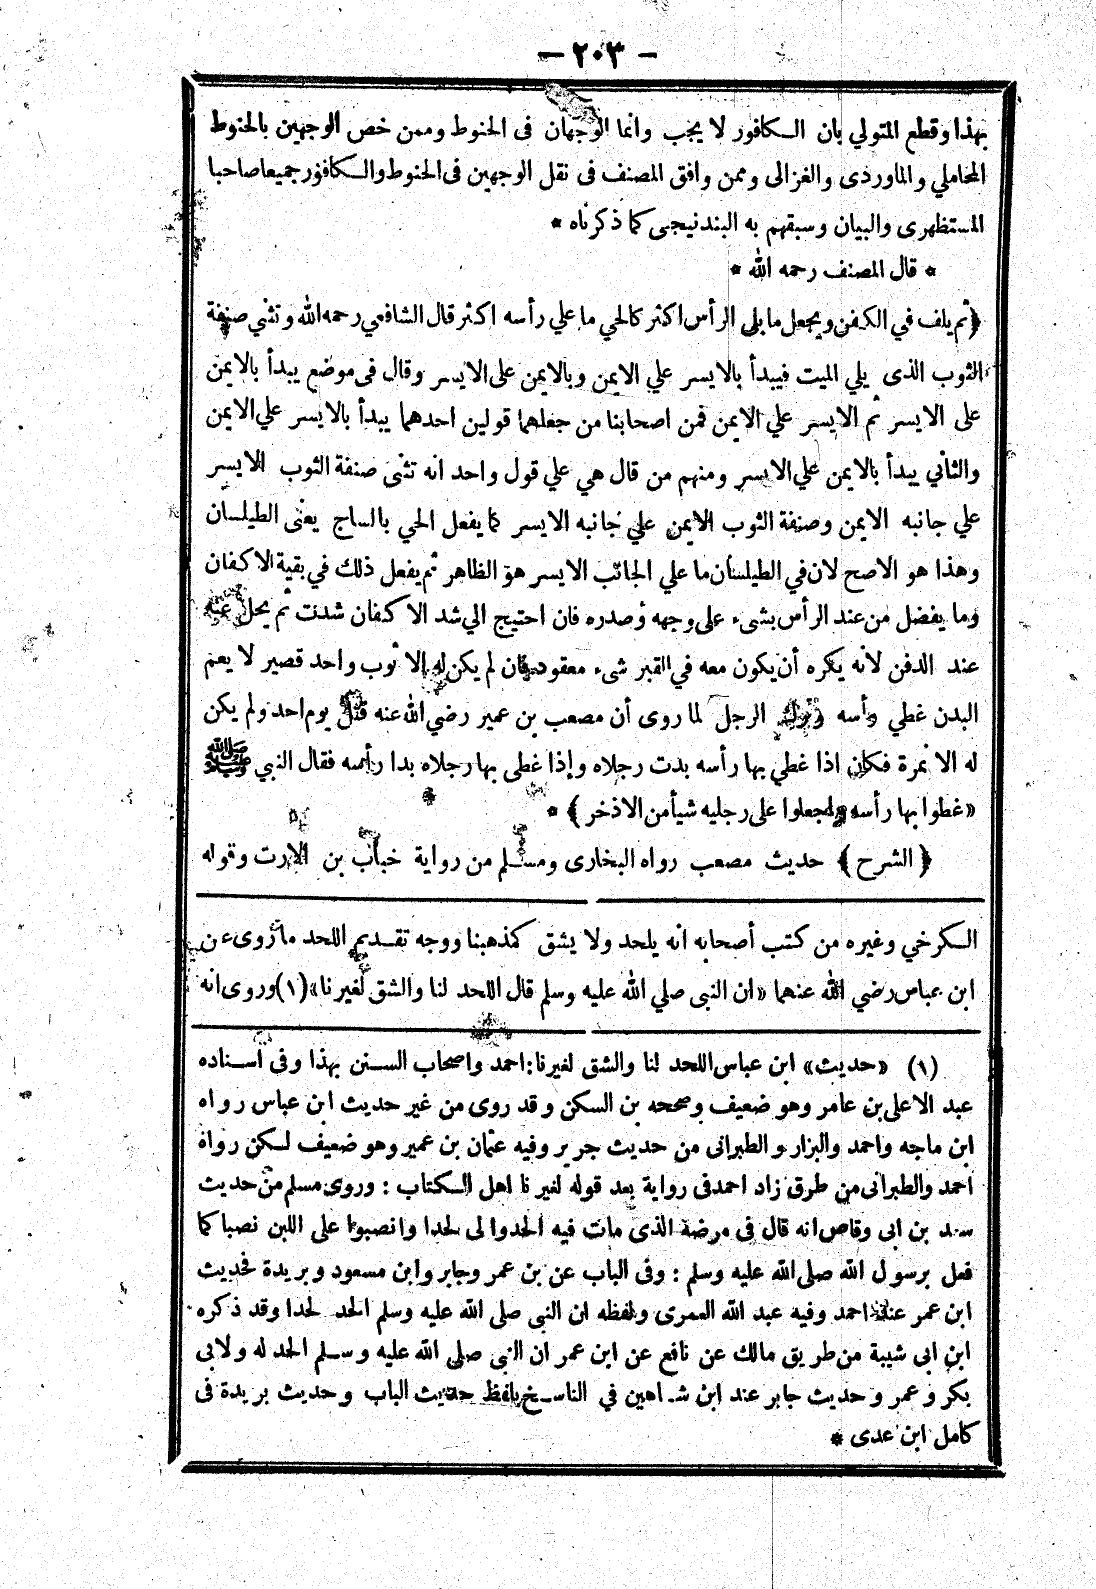 — ٢٠٣ —
بهذا وقطع المتولي بان الكافور لا يجب وانما الوجهان فى الحنوط وممن خص الوجهين بالحنوط
المحاملي والماوردى والغزالى وممن وافق المصنف فى نقل الوجهين فى الحنوط والكافور جميعا صاحبا
المستظهرى والبيان وسبقهم به البندنيجى كما ذكرناه *
* قال المصنف رحمه الله *
﴿ثم يلف في الكفن ويجعل ما يلى الرأس اكثر كالحي ما علي رأسه اكثر قال الشافعي رحمه الله وتثني صنفة
الثوب الذى يلي الميت فيبدأ بالايسر علي الايمن وبالايمن على الايسر وقال فى موضع يبدأ بالايمن
على الايسر ثم الايسر علي الايمن فمن اصحابنا من جعلهما قولين احدهما يبدأ بالايسر علي الايمن
والثاني يبدأ بالايمن علي الايسر ومنهم من قال هي علي قول واحد انه تثنى صنفة الثوب الايسر
علي جانبه الايمن وصنفة الثوب الايمن علي جانبه الايسر كما يفعل الحي بالساج يعنى الطيلسان
وهذا هو الاصح لان في الطيلسان ما علي الجانب الايسر هو الظاهر ثم يفعل ذلك في بقية الاكفان
وما يفضل من عند الرأس بشىء على وجهه وصدره فان احتيج الي شد الاكفان شدت ثم يحل عنه
عند الدفن لأنه يكره أن يكون معه في القبر شىء معقود فان لم يكن له الا ثوب واحد قصير لا يعم
البدن غطي رأسه وترك الرجل لما روى أن مصعب بن عمير رضي الله عنه قتل يوم احد ولم يكن
له الا نمرة فكان اذا غطي بها رأسه بدت رجلاه وإذا غطى بها رجلاه بدا رأسه فقال النبي ﷺ
«غطوا بها رأسه واجعلوا على رجليه شيأ من الاذخر﴾ *
﴿الشرح﴾ حديث مصعب رواه البخارى ومسلم من رواية خباب بن الارت وقوله
الكرخي وغيره من كتب أصحابه انه يلحد ولا يشق كمذهبنا ووجه تقديم اللحد ما روى عن
ابن عباس رضي الله عنهما «ان النبى صلي الله عليه وسلم قال اللحد لنا والشق لغيرنا» (١) وروى انه
(١) «حديث» ابن عباس اللحد لنا والشق لغيرنا: احمد واصحاب السنن بهذا وفى اسناده
عبد الاعلى بن عامر وهو ضعيف وصححه بن السكن وقد روى من غير حديث ابن عباس رواه
ابن ماجه واحمد والبزار والطبرانى من حديث جرير وفيه عثمان بن عمير وهو ضعيف لكن رواه
احمد والطبرانى من طرق زاد احمد فى رواية بعد قوله لغيرنا اهل الكتاب : وروى مسلم من حديث
سعد بن ابى وقاص انه قال فى مرضه الذى مات فيه الحدوا لى لحدا وانصبوا على اللبن نصبا كما
فعل برسول الله صلى الله عليه وسلم : وفى الباب عن بن عمر وجابر وابن مسعود وبريدة فحديث
ابن عمر عند احمد وفيه عبد الله العمرى ولفظه ان النبى صلى الله عليه وسلم الحد لحدا وقد ذكره
ابن ابى شيبة من طريق مالك عن نافع عن ابن عمر ان النبى صلى الله عليه وسلم الحد له ولابى
بكر وعمر وحديث جابر عند ابن شاهين في الناسخ بلفظ حديث الباب وحديث بريدة فى
كامل ابن عدى *